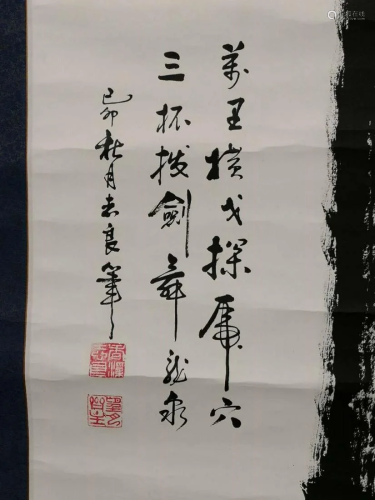 萬里横戈探虎穴
三杯拔劍舞龙泉
己卯秋月志良筆